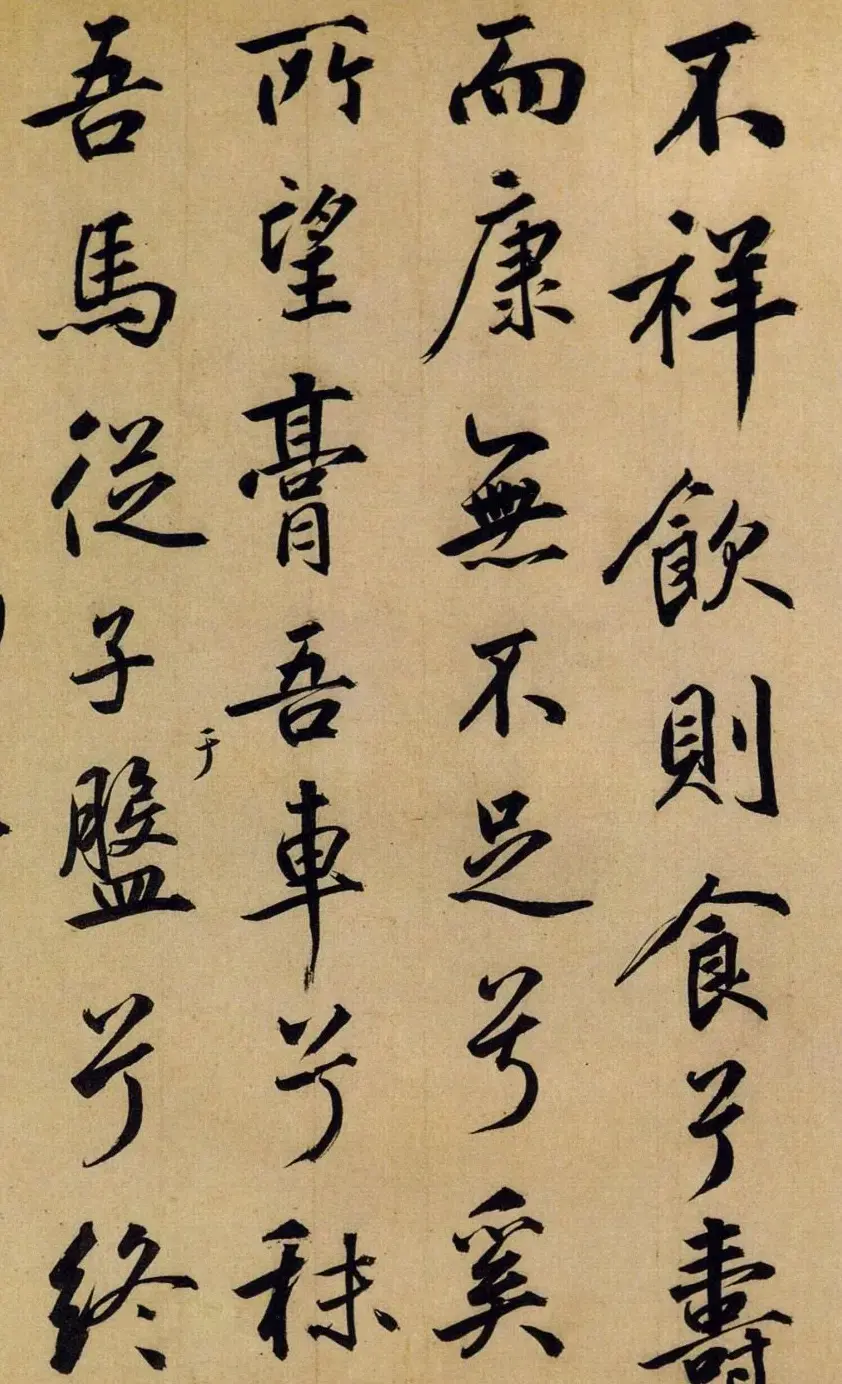 不祥飲則食兮壽
而康無不足兮奚
所望膏吾車兮秣
吾馬從子盤兮終
于